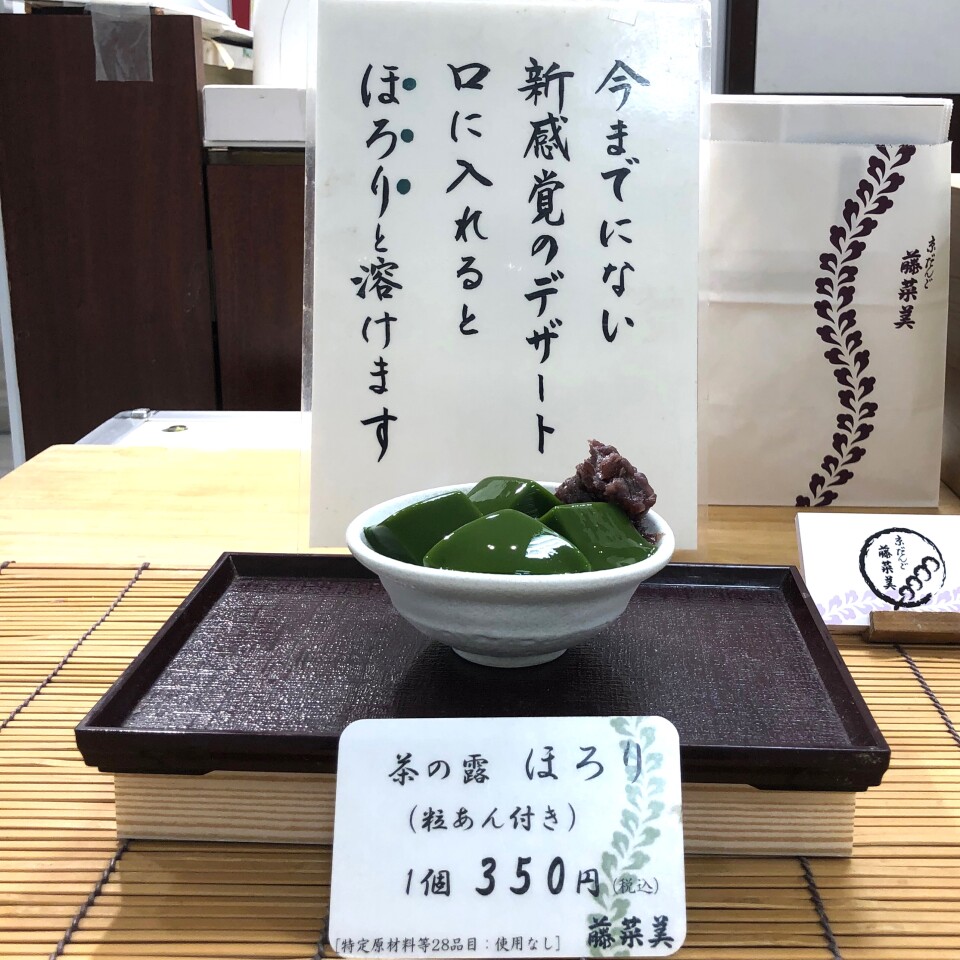 今までにない
新感覚のデザート
口に入れると
ほろりと溶けます
京だんご
藤菜美
京だんご
藤菜美
茶の露 ほろり
(粒あん付き)
1個 350円(税込)
[特定原材料等28品目:使用なし]
藤菜美